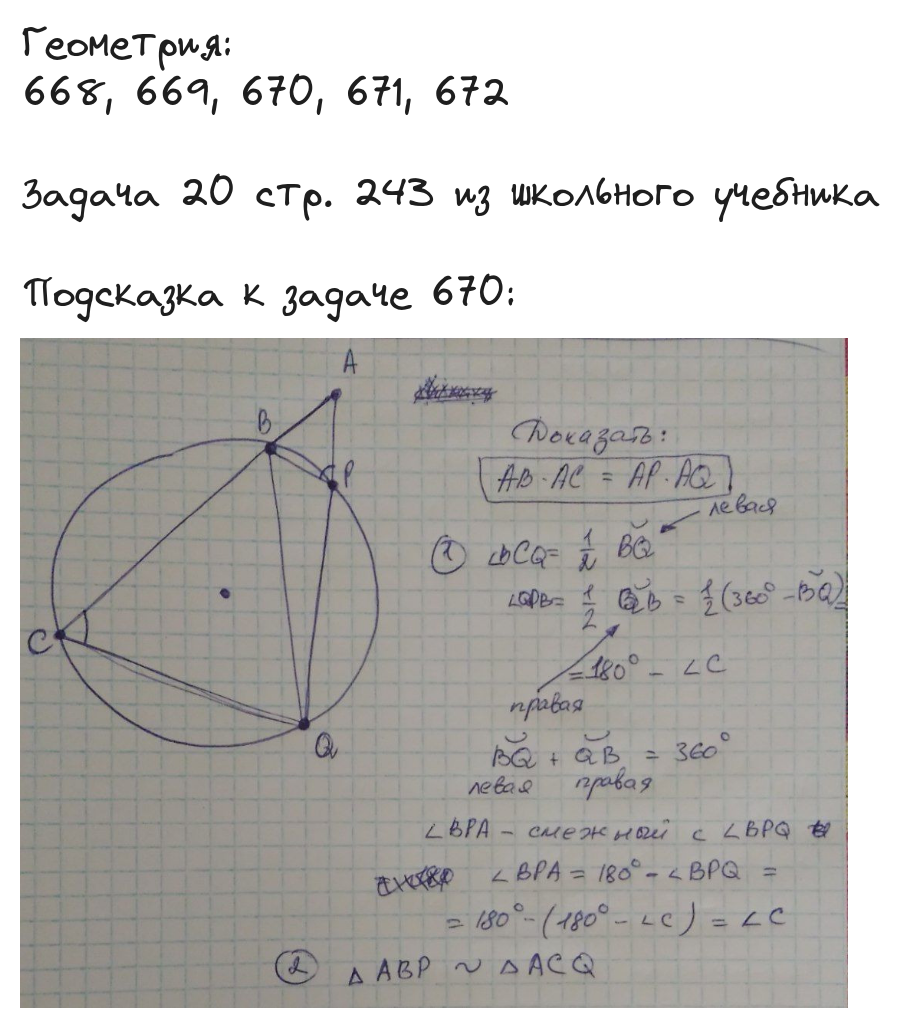 Геометрия:
668, 669, 670, 671, 672
Задача 20 стр. 243 из школьного учебника
Подсказка к задаче 670:
A
B
P
C
Q
Доказать:
AB · AC = AP · AQ
левая
① ∠BCQ = 1/2 B͝Q
∠QPB = 1/2 Q͝B = 1/2 (360° - B͝Q) =
= 180° - ∠C
правая
B͝Q + Q͝B = 360°
левая правая
∠BPA - смежный с ∠BPQ
∠BPA = 180° - ∠BPQ =
= 180° - (180° - ∠C) = ∠C
② △ABP ~ △ACQ